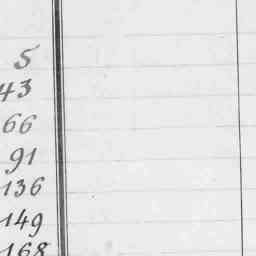 5
43
66
91
136
149
168